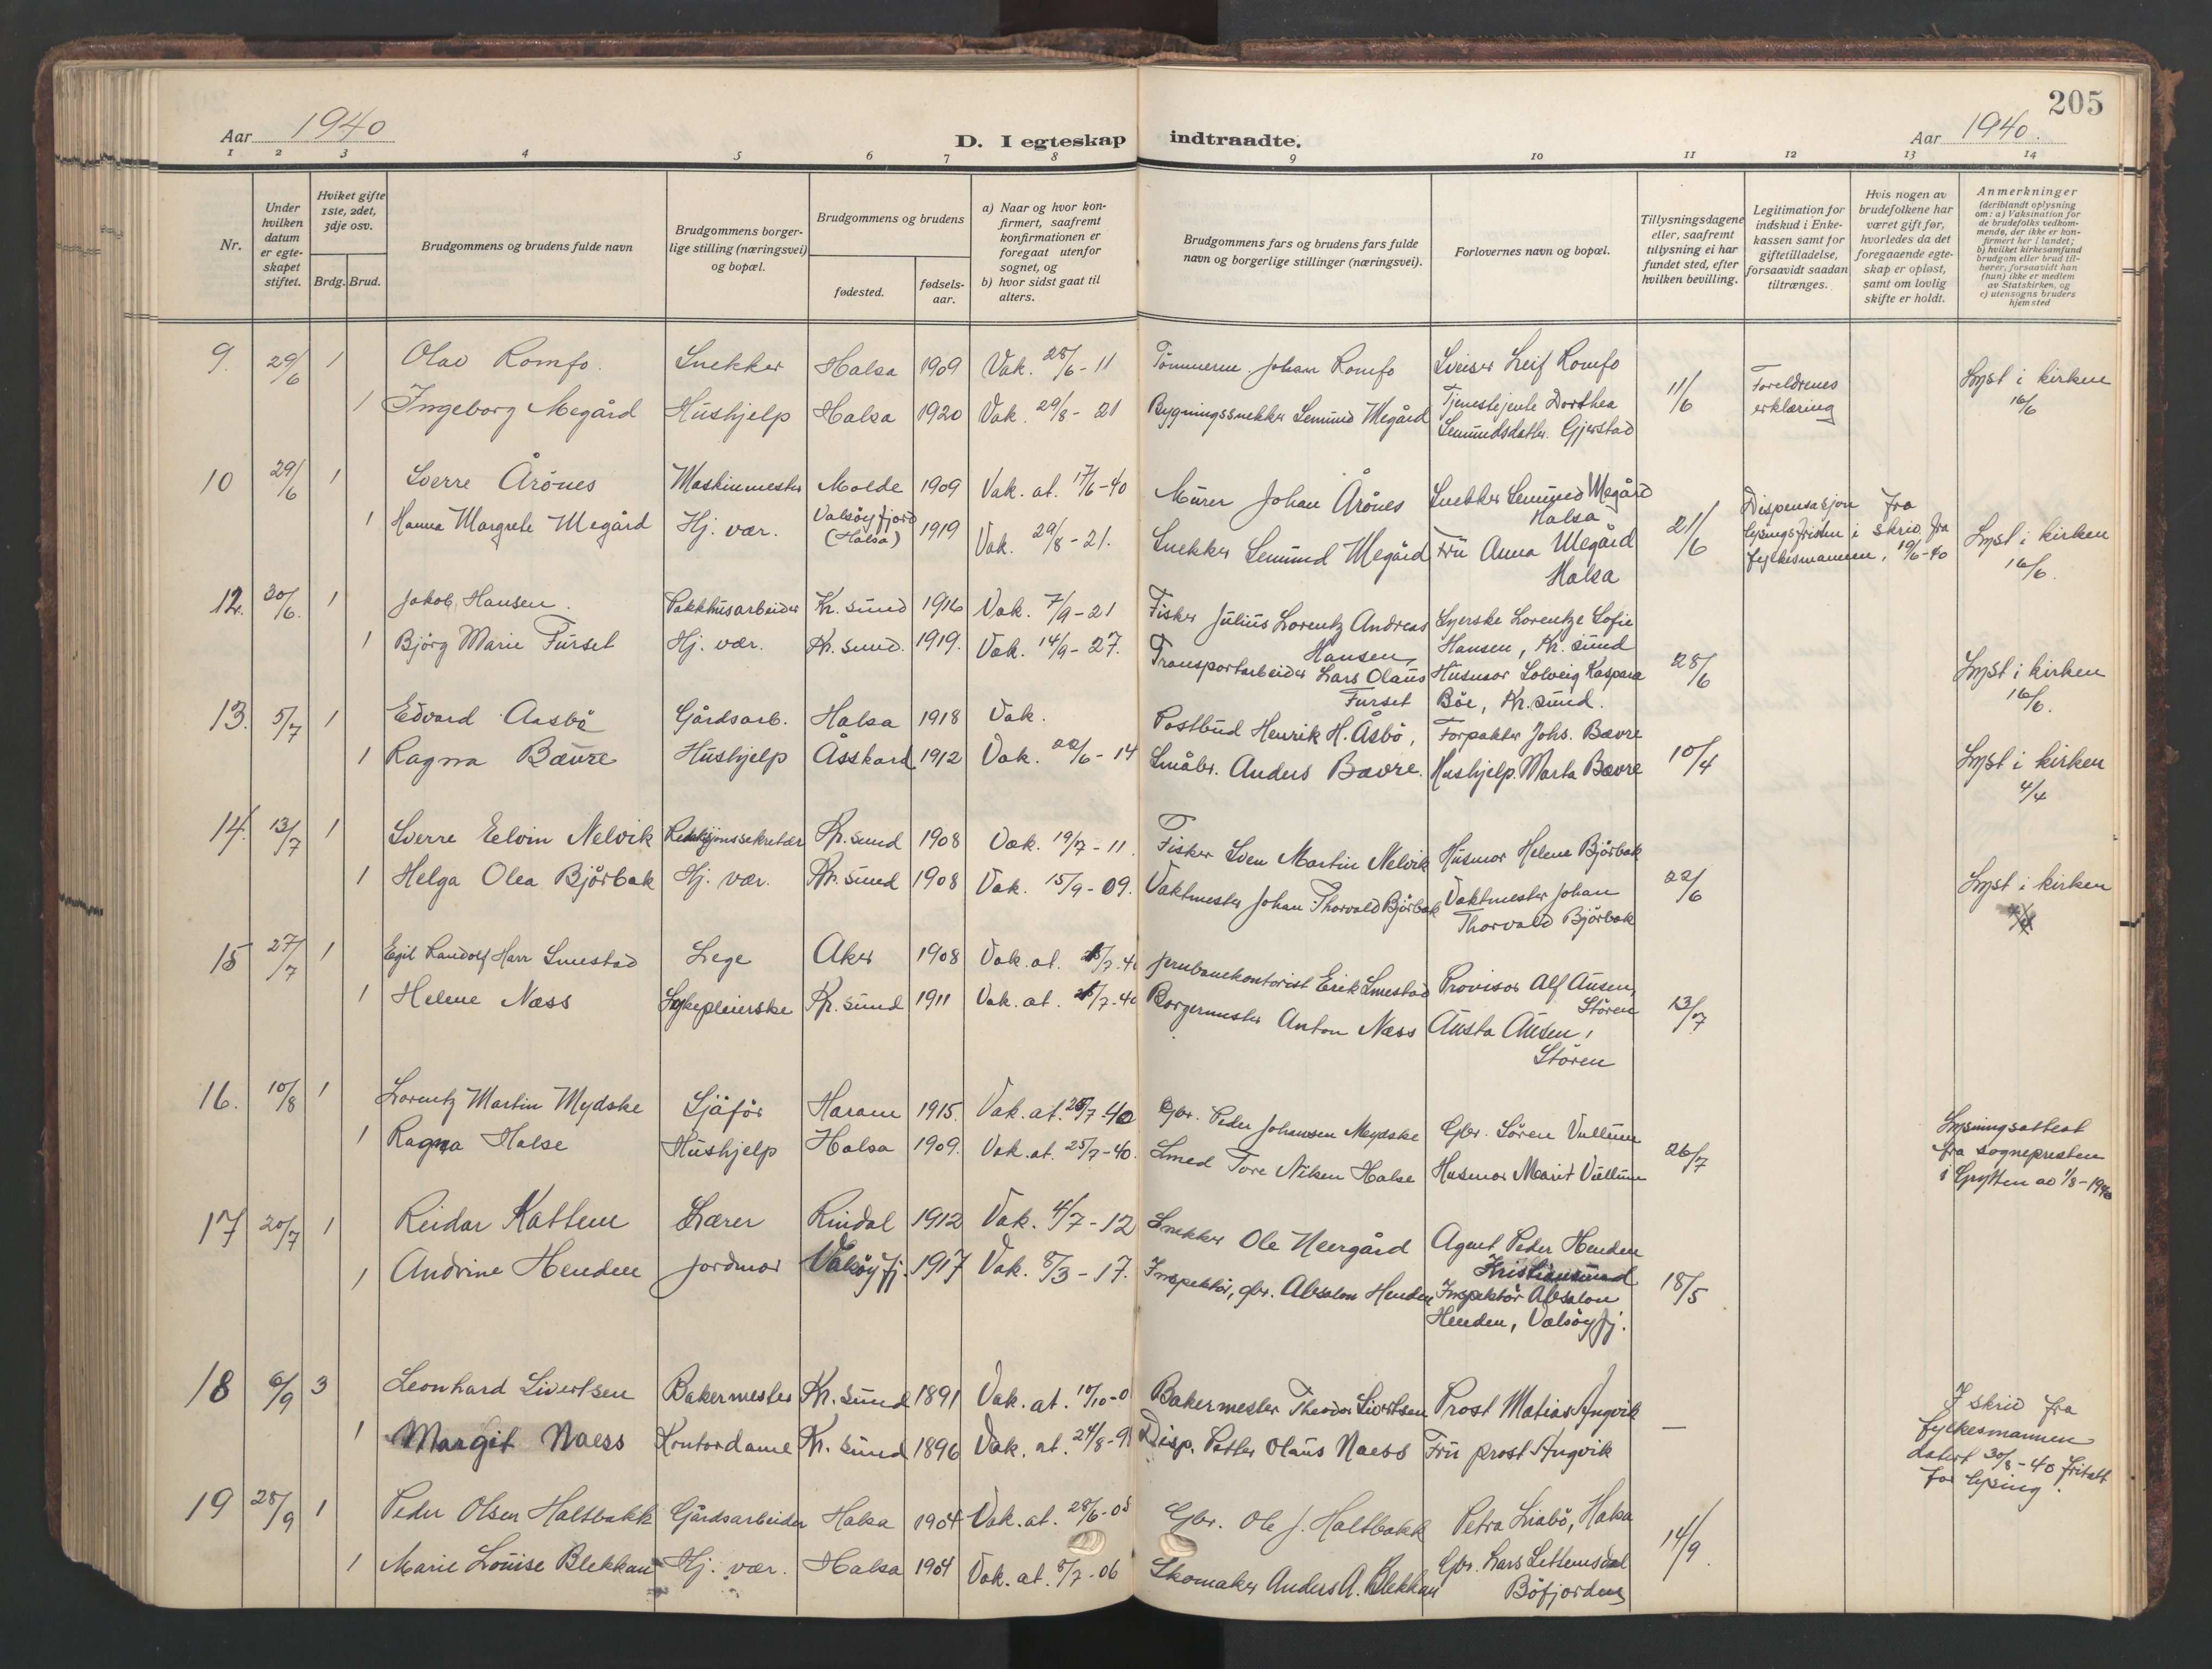 205
Aar 1940
D. I egteskap indtraadte.
Aar 1940.
1 2 3 4 5 6 7 8 9 10 11 12 13 14
Nr.
Under hvilken datum er egteskapet stiftet.
Hviket gifte 1ste, 2det, 3dje osv.
Brdg. Brud.
Brudgommens og brudens fulde navn
Brudgommens borgerlige stilling (næringsvei) og bopæl.
Brudgommens og brudens
fødested.
fødselsaar.
a) Naar og hvor konfirmert, saafremt konfirmationen er foregaat utenfor sognet, og
b) hvor sidst gaat til alters.
Brudgommens fars og brudens fars fulde navn og borgerlige stillinger (næringsvei).
Forlovernes navn og bopæl.
Tillysningsdagene eller, saafremt tillysning ei har fundet sted, efter hvilken bevilling.
Legitimation for indskud i Enkekassen samt for giftetilladelse, forsaavidt saadan tiltrænges.
Hvis nogen av brudefolkene har været gift før, hvorledes da det foregaaende egteskap er opløst, samt om lovlig skifte er holdt.
Anmerkninger (deriblandt oplysning om: a) Vaksination for de brudefolks vedkommende, der ikke er konfirmert her i landet; b) hvilket kirkesamfund brudgom eller brud tilhører, forsaavidt han (hun) ikke er medlem av Statskirken, og c) utensogns bruders hjemsted
9. 29/6 1 Olav Romfo. Snekker Halsa 1909 Vak. 28/6-11 Johan Romfo Sveiser Leif Romfo
1 Ingeborg Megård Hushjelp Halsa 1920 Vak. 29/8-21 Bygningssnekker Semund Megård Tjenestejente Dorthea Semundsdatter. Gjerstad 11/6 Foreldrenes erklæring Lyst i kirken 16/6
10 29/6 1 Sverre Årönes Maskinmester Molde 1909 Vak. at. 17/6-40 Murer Johan Årönes Snekker Semund Megård Halsa
1 Hanna Margrete Megård Hj. vær. Valsöyfjord (Halsa) 1919 Vak. 29/8-21. Snekker Semund Megård Fru Anna Megård Halsa 21/6 Dispensasjon fra lysingsfristen i skriv fra fylkesmannen, 19/6-40 Lyst i kirken 16/6.
12. 30/6. 1 Jakob Hansen. Pakkhusarbeider Kr. sund 1916 Vak. 7/9-21 Fisker Julius Lorentz Andreas Hansen, Syerske Lorentze Sofie Hansen, Kr. sund
1 Björg Marie Furset Hj. vær. Kr. sund. 1919. Vak. 14/9-27. Transportarbeider Lars Olaus Furset Husmor Solveig Kaspara Böe, Kr. sund. 28/6 Lyst i kirken 16/6.
13. 5/7 1 Edvard Aasbö Gårdsarb. Halsa 1918 Vak. Postbud Henrik H. Åsbö, Forpakter Johs. Bævre
1 Ragna Bævre Hushjelp Åsskard 1912 Vak. 22/6-14 Småbr. Anders Bævre. Hushjelp. Marta Bævre 10/4 Lyst i kirken 4/4
14. 13/7 1 Sverre Eelvin Nelvik Redaksjonssekretær Kr. sund 1908 Vak. 19/7-11. Fisker Sven Martin Nelvik Husmor Helene Björbak
1 Helga Olea Björbak Hj. vær. Kr. sund 1908 Vak. 15/9-09. Vaktmester Johan Thorvald Björbak Vaktmester Johan Thorvald Björbak 22/6 Lyst i kirken
15 27/7 1 Egil Randolf Harr Smestad Lege Aker 1908 Vak. at. Jernbanekontorist Erik Smestad Provisor Alf Ausen, Stören
1 Helene Næss Sykepleierske Kr. sund 1911 Vak. at. Borgermester Anton Næss Austa Ausen, Stören 13/7
16. 10/8 1 Lorentz Martin Mydske Sjåför Haram 1915. Vak. at. 25/7-40 Gbr. Peder Johansen Mydske Gbr. Sören Vullum
1 Ragna Halse Hushjelp Halsa 1909. Vak. at. 25/7-40. Smed Tore Nilsen Halse Husmor Marit Vullum 26/7 Lysningsattest fra sognepresten i Grytten av 1/8-1940
17 20/7 1 Reidar Kattem Lærer Rindal 1912 Vak. 4/7-12 Snekker Ole Neergård Agent Peder Henden Kristiansund
1 Andrine Henden Jordmor Valsöyfj. 1917 Vak. 8/3-17. Inspektör, gbr. Absalon Henden Inspektör Absalon Henden, Valsöyfj. 18/5
18 6/9 3 Leonhard Sivertsen Bakermester Kr. sund 1891 Vak. at. 10/10-0 Bakermester Theodor Sivertsen Prost Matias Angvik
1 Margit Naess Kontordame Kr. sund 1896 Vak. at. 24/8-9 Disp. Petter Olaus Naess Fru prost Angvik — I skriv fra fylkesmannen datert 30/8-40 fritatt for lysing.
19 28/9 1 Peder Olsen Haltbakk Gårdsarbeider Halsa 1904 Vak. at. 28/6-05 Gbr. Ole J. Haltbakk Petra Liabö, Halsa
1 Marie Louise Blekkan Hj. vær. Halsa 1904 Vak. at. 8/7-06 Skomaker Anders A. Blekkan Gbr. Lars Settemsdal Böfjorden 14/9.